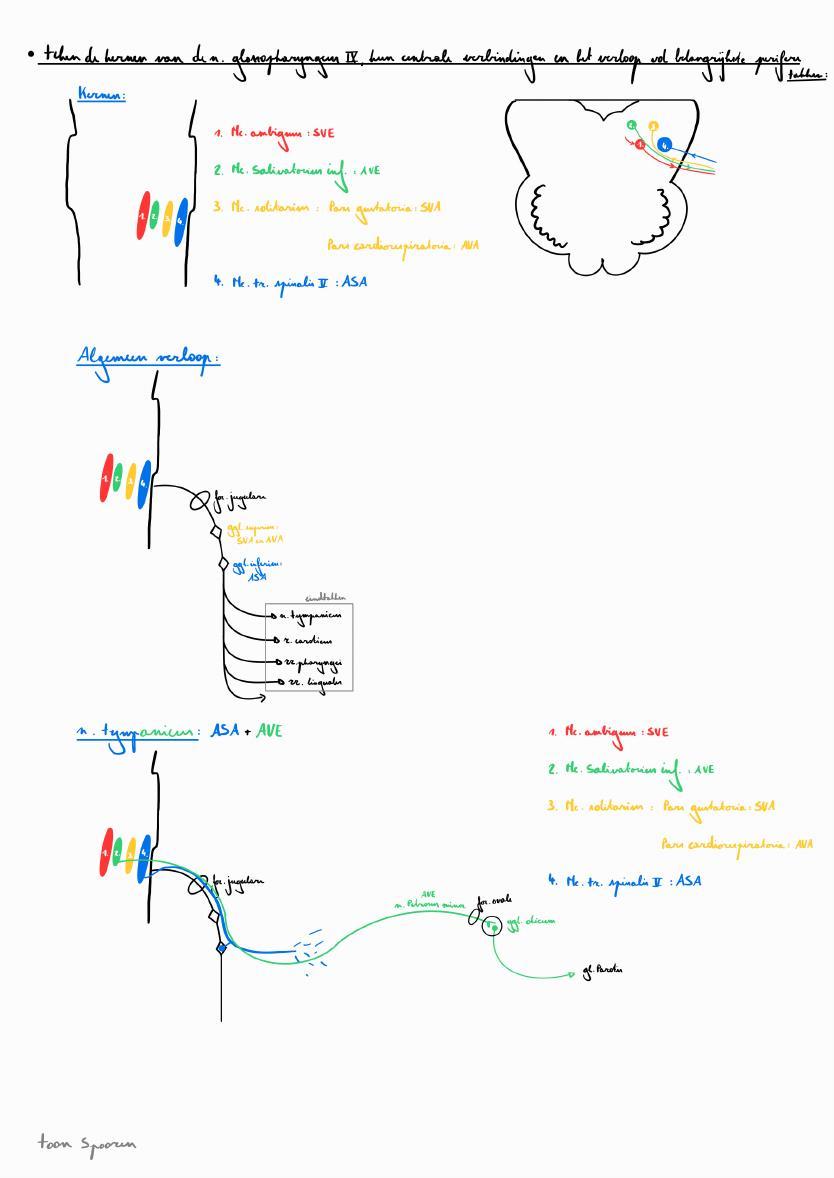 • teken de kernen van de n. glossopharyngeus IX, hun centrale verbindingen en het verloop vd belangrijkste perifere
takken:
Kernen:
1. Nc. ambiguus : SVE
2. Nc. Salivatorius inf. : AVE
3. Nc. solitarius : Pars gustatoria : SVA
Pars cardiorespiratoria : AVA
4. Nc. tr. spinalis V : ASA
1 2 3 4
2 3
1 4
Algemeen verloop:
1 2 3 4
for. jugulare
ggl. superius:
SVA en AVA
ggl. inferius:
ASA
eindtakken
n. tympanicus
r. caroticus
rr. pharyngei
rr. linguales
n. tympanicus: ASA + AVE
1. Nc. ambiguus : SVE
2. Nc. Salivatorius inf. : AVE
3. Nc. solitarius : Pars gustatoria : SVA
Pars cardiorespiratoria : AVA
4. Nc. tr. spinalis V : ASA
1 2 3 4
for. jugulare
AVE
n. Petrosus minor
for. ovale
ggl. oticum
gl. Parotis
toon Spooren